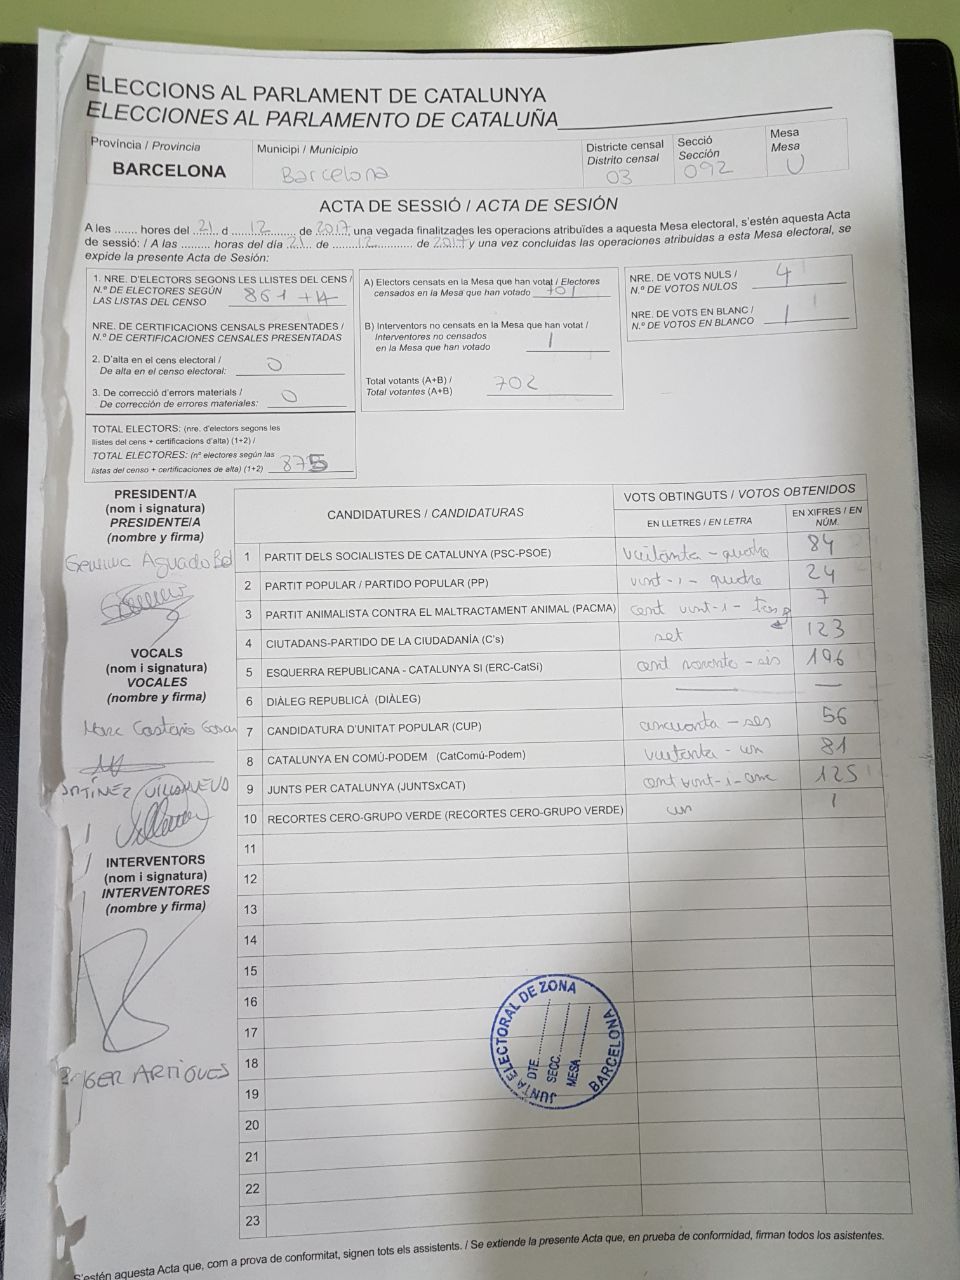 ELECCIONS AL PARLAMENT DE CATALUNYA
ELECCIONES AL PARLAMENTO DE CATALUÑA
Província / Provincia
BARCELONA
Municipi / Municipio
Barcelona
Districte censal
Distrito censal
03
Secció
Sección
092
Mesa
Mesa
U
ACTA DE SESSIÓ / ACTA DE SESIÓN
A les ....... hores del 21 d 12 de 2017 una vegada finalitzades les operacions atribuïdes a aquesta Mesa electoral, s'estén aquesta Acta
de sessió: / A las ......... horas del día 21 de 12 de 2017 y una vez concluidas las operaciones atribuidas a esta Mesa electoral, se
expide la presente Acta de Sesión:
1. NRE. D'ELECTORS SEGONS LES LLISTES DEL CENS /
N.º DE ELECTORES SEGÚN
LAS LISTAS DEL CENSO 861 +14
NRE. DE CERTIFICACIONS CENSALS PRESENTADES /
N.º DE CERTIFICACIONES CENSALES PRESENTADAS
2. D'alta en el cens electoral /
De alta en el censo electoral: 0
3. De correcció d'errors materials /
De corrección de errores materiales: 0
TOTAL ELECTORS: (nre. d'electors segons les
llistes del cens + certificacions d'alta) (1+2) /
TOTAL ELECTORES: (nº electores según las
listas del censo + certificaciones de alta) (1+2) 875
A) Electors censats en la Mesa que han votat / Electores
censados en la Mesa que han votado 701
B) Interventors no censats en la Mesa que han votat /
Interventores no censados
en la Mesa que han votado 1
Total votants (A+B) /
Total votantes (A+B) 702
NRE. DE VOTS NULS /
N.º DE VOTOS NULOS 4
NRE. DE VOTS EN BLANC /
N.º DE VOTOS EN BLANCO 1
PRESIDENT/A
(nom i signatura)
PRESIDENTE/A
(nombre y firma)
Gemma Aguado Bel
VOCALS
(nom i signatura)
VOCALES
(nombre y firma)
Marc Castaño
VILLANUEVA
INTERVENTORS
(nom i signatura)
INTERVENTORES
(nombre y firma)
ROGER ARTIGUES
CANDIDATURES / CANDIDATURAS
VOTS OBTINGUTS / VOTOS OBTENIDOS
EN LLETRES / EN LETRA
EN XIFRES / EN
NÚM.
1 PARTIT DELS SOCIALISTES DE CATALUNYA (PSC-PSOE) vuitanta - quatre 84
2 PARTIT POPULAR / PARTIDO POPULAR (PP) vint-i-quatre 24
3 PARTIT ANIMALISTA CONTRA EL MALTRACTAMENT ANIMAL (PACMA) cent vint-i-tres 7
4 CIUTADANS-PARTIDO DE LA CIUDADANÍA (C's) set 123
5 ESQUERRA REPUBLICANA - CATALUNYA SI (ERC-CatSí) cent noranta - sis 196
6 DIÀLEG REPUBLICÀ (DIÀLEG) — —
7 CANDIDATURA D'UNITAT POPULAR (CUP) cincuanta - ses 56
8 CATALUNYA EN COMÚ-PODEM (CatComú-Podem) vuitanta - un 81
9 JUNTS PER CATALUNYA (JUNTSxCAT) cent vint-i-cinc 125
10 RECORTES CERO-GRUPO VERDE (RECORTES CERO-GRUPO VERDE) un 1
11
12
13
14
15
16
17
18
19
20
21
22
23
JUNTA ELECTORAL DE ZONA
BARCELONA
DTE.
SECC.
MESA
S'estén aquesta Acta que, com a prova de conformitat, signen tots els assistents. / Se extiende la presente Acta que, en prueba de conformidad, firman todos los asistentes.